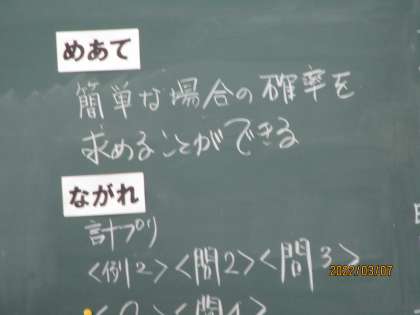 めあて
簡単な場合の確率を
求めることができる
ながれ
計プリ
<例2><問2><問3>
2022/03/07